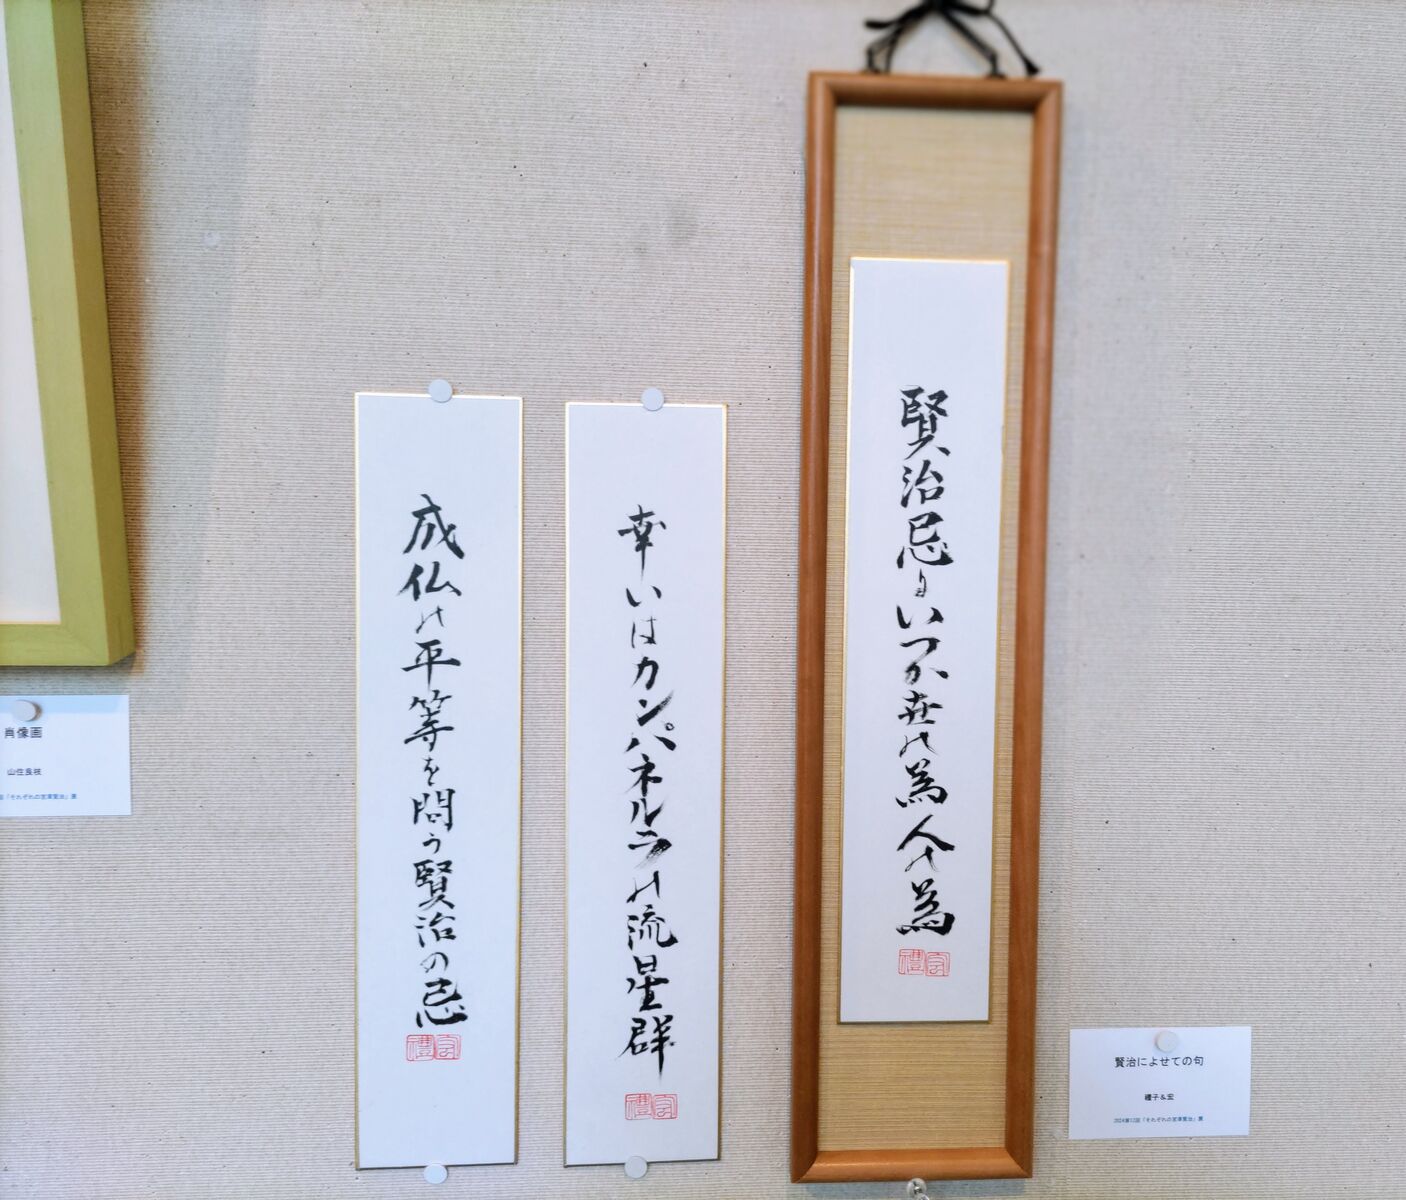 賢治忌よいつか世の為人の為
宏禮
幸いはカンパネルラの流星群
宏禮
成仏の平等を問う賢治の忌
宏禮
肖像画
山住良枝
回「それぞれの宮澤賢治」展
賢治によせての句
禮子&宏
2024第12回「それぞれの宮澤賢治」展